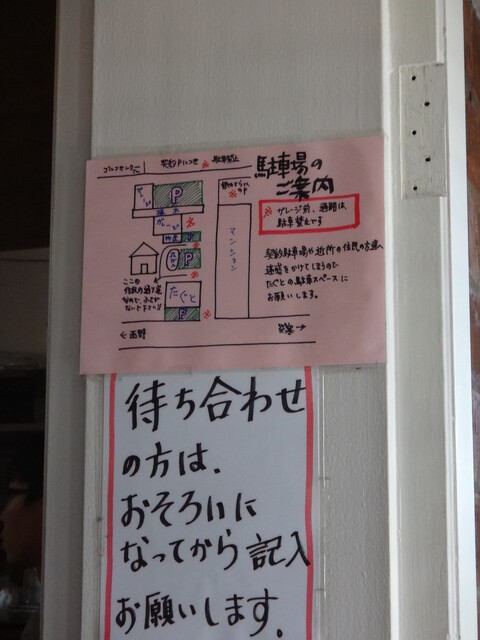 駐車場の
ご案内
※ ガレージ前、通路は、
駐車禁止です
契約駐車場や近所の住民の方達へ
迷惑をかけてしまうので
たぐとの駐車スペースに
お願いします。
ゴルフセンター
契約Pにつき ※ 駐車禁止
P
ガレージ
P
P
マンション
ここの
たぐと
P
← 西野
発寒 →
待ち合わせ
の方は、
おそろいに
なってから記入
お願いします。